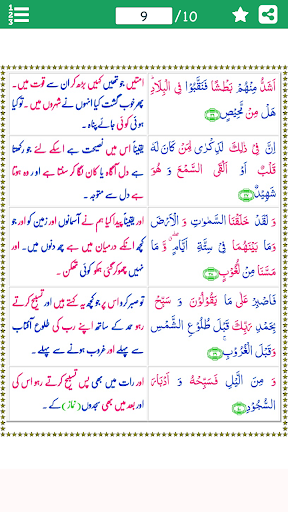 9 /10
اَشَدُّ مِنْهُمْ بَطْشًا فَنَقَّبُوْا فِی الْبِلَادِ ؕ
هَلْ مِنْ مَّحِیْصٍ
امتیں جو تھیں کہیں بڑھ کر ان سے قوت میں۔
پھر خوب گشت کیا انہوں نے شہروں میں۔ تو کیا
ہوئی کوئی جائے پناہ۔
اِنَّ فِیْ ذٰلِكَ لَذِكْرٰی لِمَنْ كَانَ لَهٗ
قَلْبٌ اَوْ اَلْقَی السَّمْعَ وَ هُوَ
شَهِیْدٌ
یقیناً اس میں نصیحت ہے اسکے لئے جو رکھتا
ہے دل آگاہ یا کان لگا کر سنتا ہے اور وہ
ہے دل سے متوجہ۔
وَ لَقَدْ خَلَقْنَا السَّمٰوٰتِ وَ الْاَرْضَ
وَ مَا بَیْنَهُمَا فِیْ سِتَّةِ اَیَّامٍ ۖ وَّ مَا
مَسَّنَا مِنْ لُّغُوْبٍ
اور یقیناً پیدا کیا ہم نے آسمانوں اور زمین کو اور جو
کچھ انکے درمیان میں ہے چھ دنوں میں۔ اور
نہیں چھو کر گئی ہمکو کوئی تھکن۔
فَاصْبِرْ عَلٰی مَا یَقُوْلُوْنَ وَ سَبِّحْ
بِحَمْدِ رَبِّكَ قَبْلَ طُلُوْعِ الشَّمْسِ
وَ قَبْلَ الْغُرُوْبِ
تو صبر کرو اس پر جو کچھ یہ کہتے ہیں اور تسبیح کرتے
رہو حمد کے ساتھ اپنے رب کی طلوع آفتاب
سے پہلے اور غروب ہونے سے پہلے۔
وَ مِنَ الَّیْلِ فَسَبِّحْهُ وَ اَدْبَارَ
السُّجُوْدِ
اور رات میں بھی پس تسبیح کرتے رہو اس کی
اور بعد میں بھی سجدوں (نماز) کے۔